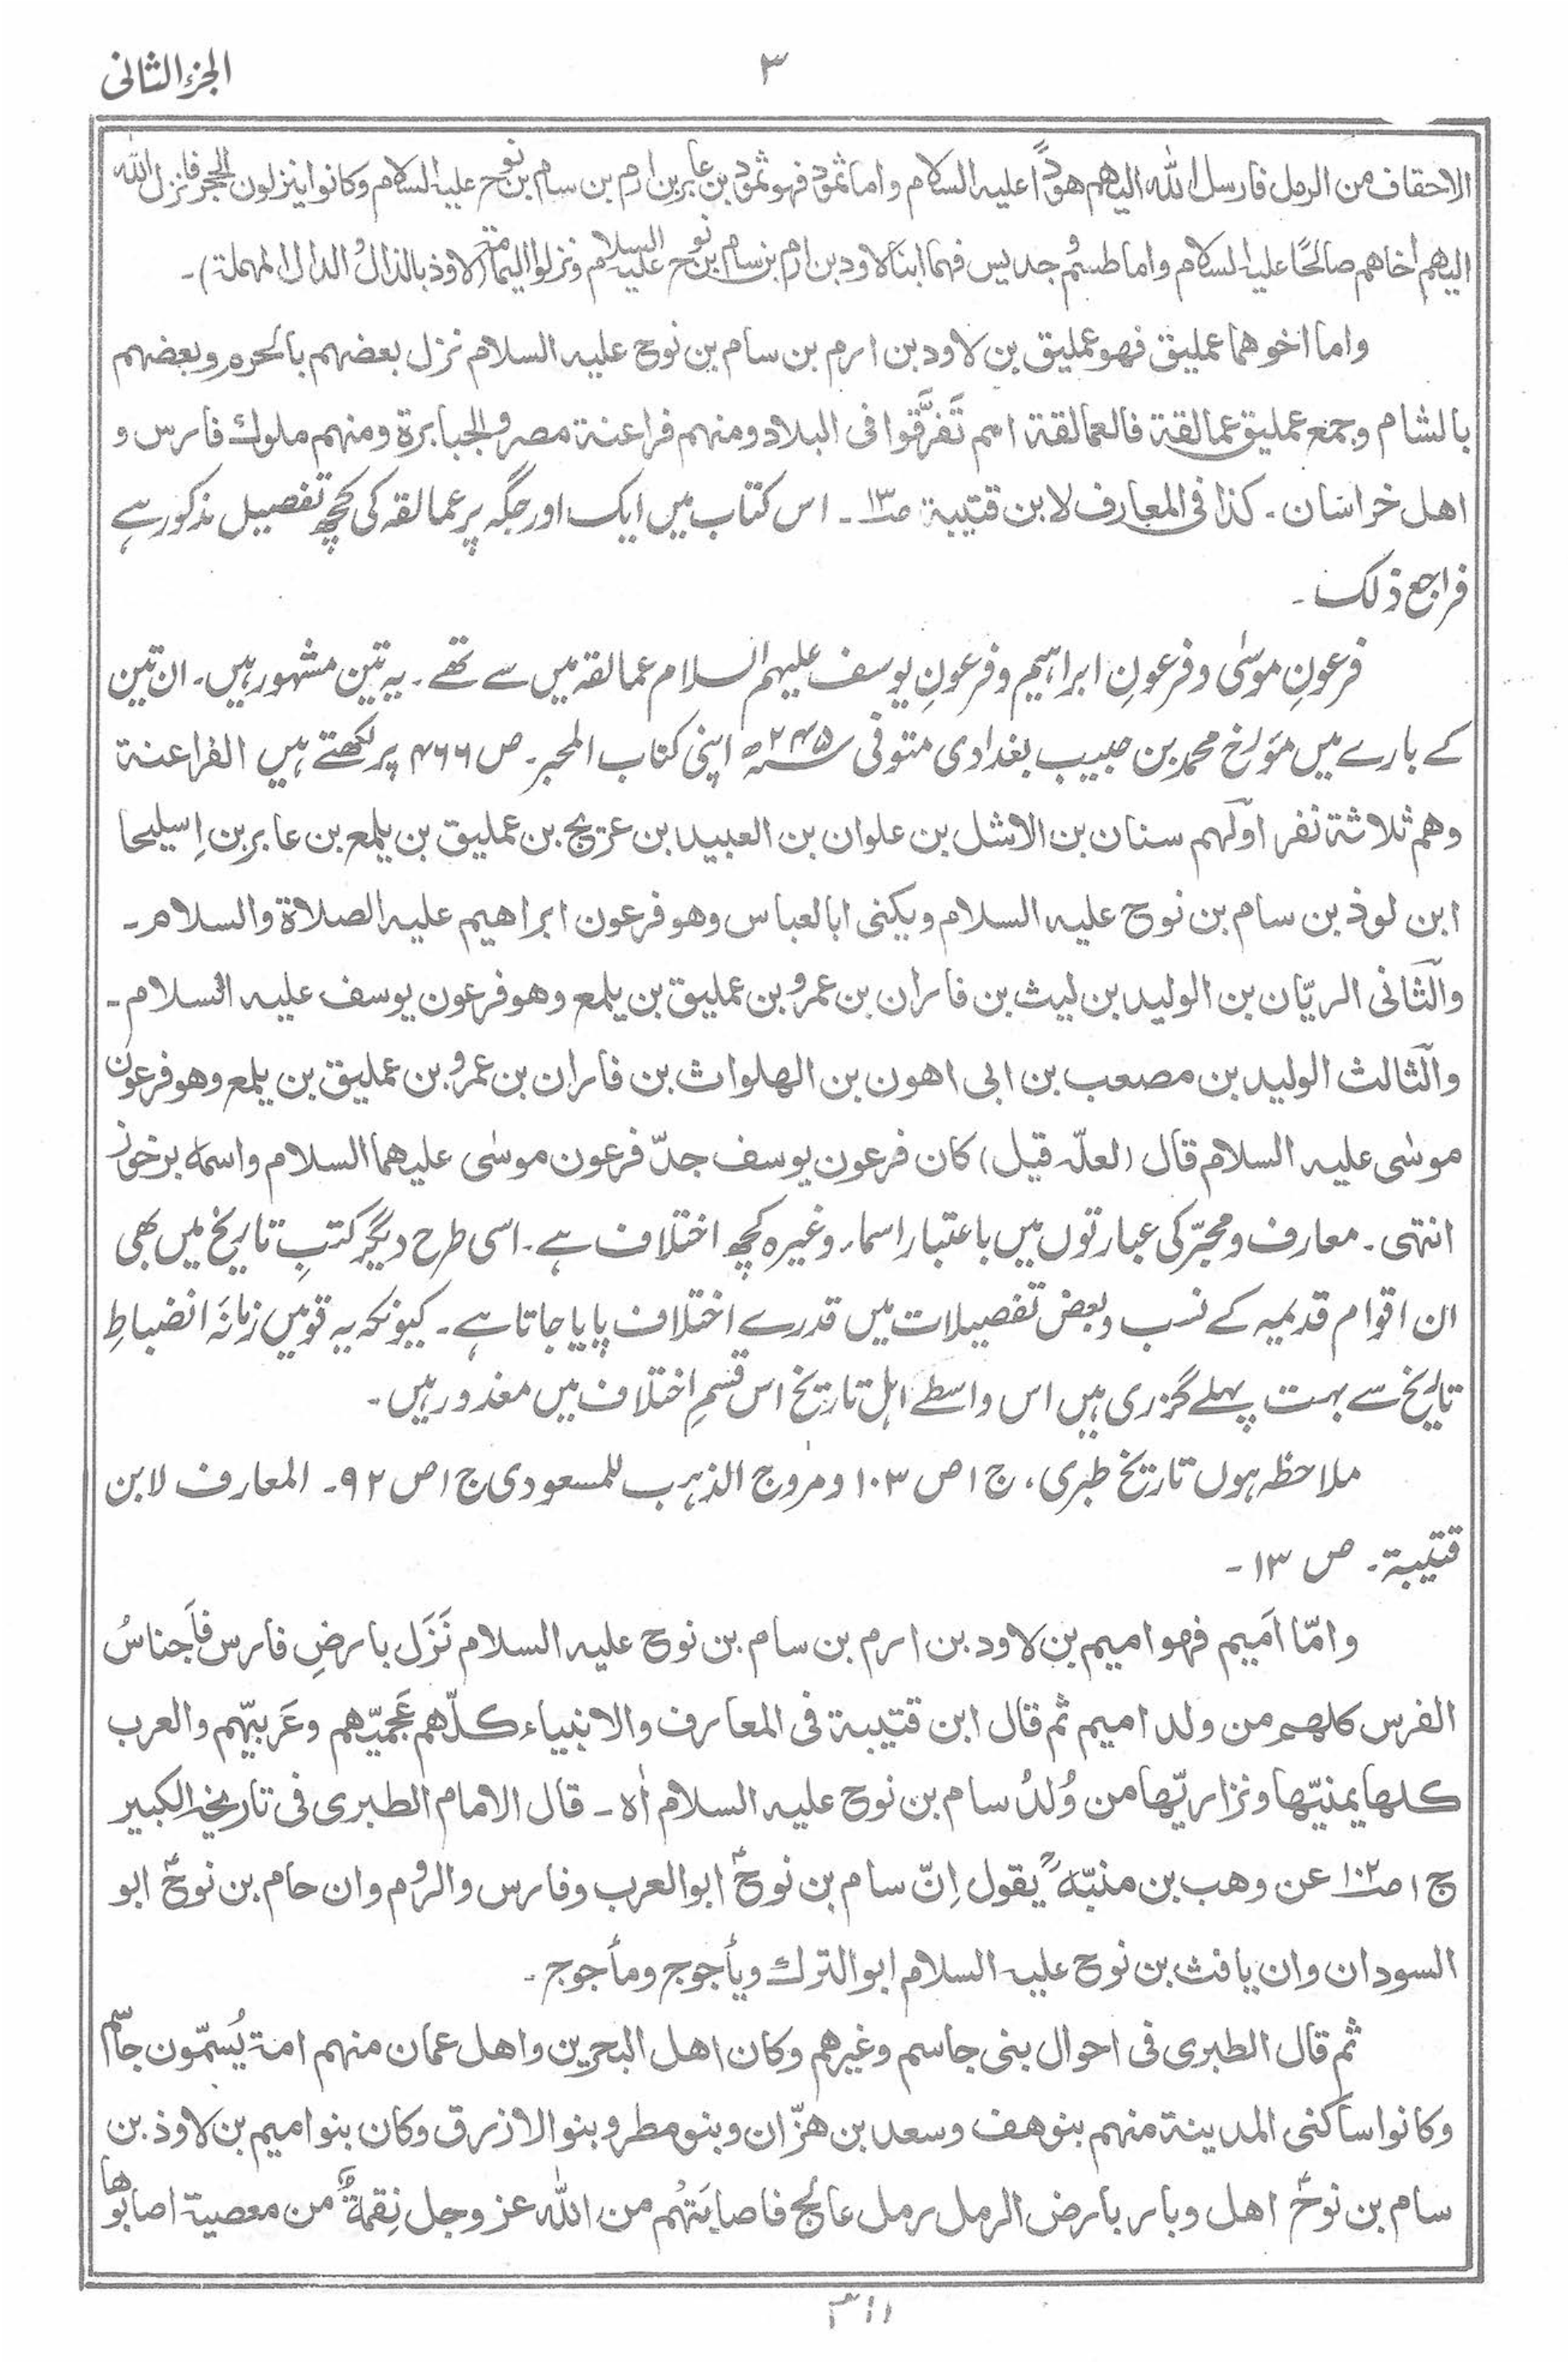 الجزء الثانی
۳
الاحقاف من الرمل فارسل اللّٰہ الیھم ھودًا علیہ السلام و اما ثمود فھو ثمود بن عابر بن ارم بن سام بن نوح علیہ السلام وکانوا ینزلون الحجر فانزل اللّٰہ
الیھم اخاھم صالحًا علیہ السلام و اما طسم و جدیس فھما ابنا لاود بن ارم بن سام بن نوح علیہ السلام و نزلوا الیمامۃ (لاوذ بالذال و الدال المھملۃ)۔
واما اخوھما عملیق فھو عملیق بن لاود بن ارم بن سام بن نوح علیہ السلام نزل بعضھم بالحرم و بعضھم
بالشام و جمع عملیق عمالقۃ فالعمالقۃ امم تَفرَّقوا فی البلاد ومنھم فراعنۃ مصر و الجبابرۃ ومنھم ملوك فارس و
اھل خراسان۔ کذا فی المعارف لابن قتیبۃ ص۱۳۔ اس کتاب میں ایک اور جگہ پر عمالقہ کی کچھ تفصیل مذکور ہے
فراجع ذلک۔
فرعونِ موسٰی و فرعونِ ابراہیم و فرعونِ یوسف علیہم السلام عمالقۃ میں سے تھے۔ یہ تین مشہور ہیں۔ ان تین
کے بارے میں مؤرخ محمد بن حبیب بغدادی متوفی ۲۴۵ھ اپنی کتاب المحبر۔ ص ۴۶۶ پر لکھتے ہیں الفراعنۃ
وھم ثلاثۃ نفر اوّلھم سنان بن الاشل بن علوان بن العبید بن عریج بن عملیق بن یلمع بن عابر بن اِسلیحا
ابن لوذ بن سام بن نوح علیہ السلام ویکنی ابا العباس وھو فرعون ابراھیم علیہ الصلاۃ والسلام۔
والثّانی الریّان بن الولید بن لیث بن فاران بن عمرو بن عملیق بن یلمع وھو فرعون یوسف علیہ السلام۔
والثّالث الولید بن مصعب بن ابی اھون بن الھلواث بن فاران بن عمرو بن عملیق بن یلمع وھو فرعون
موسٰی علیہ السلام قال (لعلّہ قیل) کان فرعون یوسف جدّ فرعون موسٰی علیھما السلام واسمہ برخوز
انتھی۔ معارف و محبّر کی عبارتوں میں باعتبار اسماء وغیرہ کچھ اختلاف ہے۔ اسی طرح دیگر کتبِ تاریخ میں بھی
ان اقوام قدیمیہ کے نسب و بعض تفصیلات میں قدرے اختلاف پایا جاتا ہے۔ کیونکہ یہ قومیں زمانۂ انضباطِ
تاریخ سے بہت پہلے گزری ہیں اس واسطے اہل تاریخ اس قسمِ اختلاف میں معذور ہیں۔
ملاحظہ ہوں تاریخ طبری، ج ۱ ص ۱۰۳ و مروج الذہب للمسعودی ج ۱ ص ۹۲۔ المعارف لابن
قتیبۃ۔ ص ۱۳۔
وامّا اَمیم فھو امیم بن لاود بن ارم بن سام بن نوح علیہ السلام نَزَل بارضِ فارس فاَجناسُ
الفرس کلھم من ولد امیم ثم قال ابن قتیبۃ فی المعارف والانبیاء کلّھم عَجَمیّھم وعَرَبیّھم والعرب
کلھا یمنیّھا و نزاریّھا من وُلدُ سام بن نوح علیہ السلام اٰہ۔ قال الامام الطبری فی تاریخہ الکبیر
ج ۱ ص۱۰۲ عن وھب بن منبّہ یقول اِنّ سام بن نوحؑ ابو العرب وفارس والروم وان حام بن نوحؑ ابو
السودان وان یافث بن نوح علیہ السلام ابو الترك ویأجوج ومأجوج۔
ثم قال الطبری فی احوال بنی جاسم وغیرھم وکان اھل البحرین واھل عمان منھم امۃ یُسمّون جاسم
وکانوا ساکنی المدینۃ منھم بنو ھف وسعد بن ھزّان وبنو مطر وبنو الازرق وکان بنو امیم بن لاوذ بن
سام بن نوحؑ اھل وبار بارض الرمل رمل عالج فاصابَتھُم من اللّٰہ عز وجل نِقمۃٌ من معصیۃ اصابُوھا